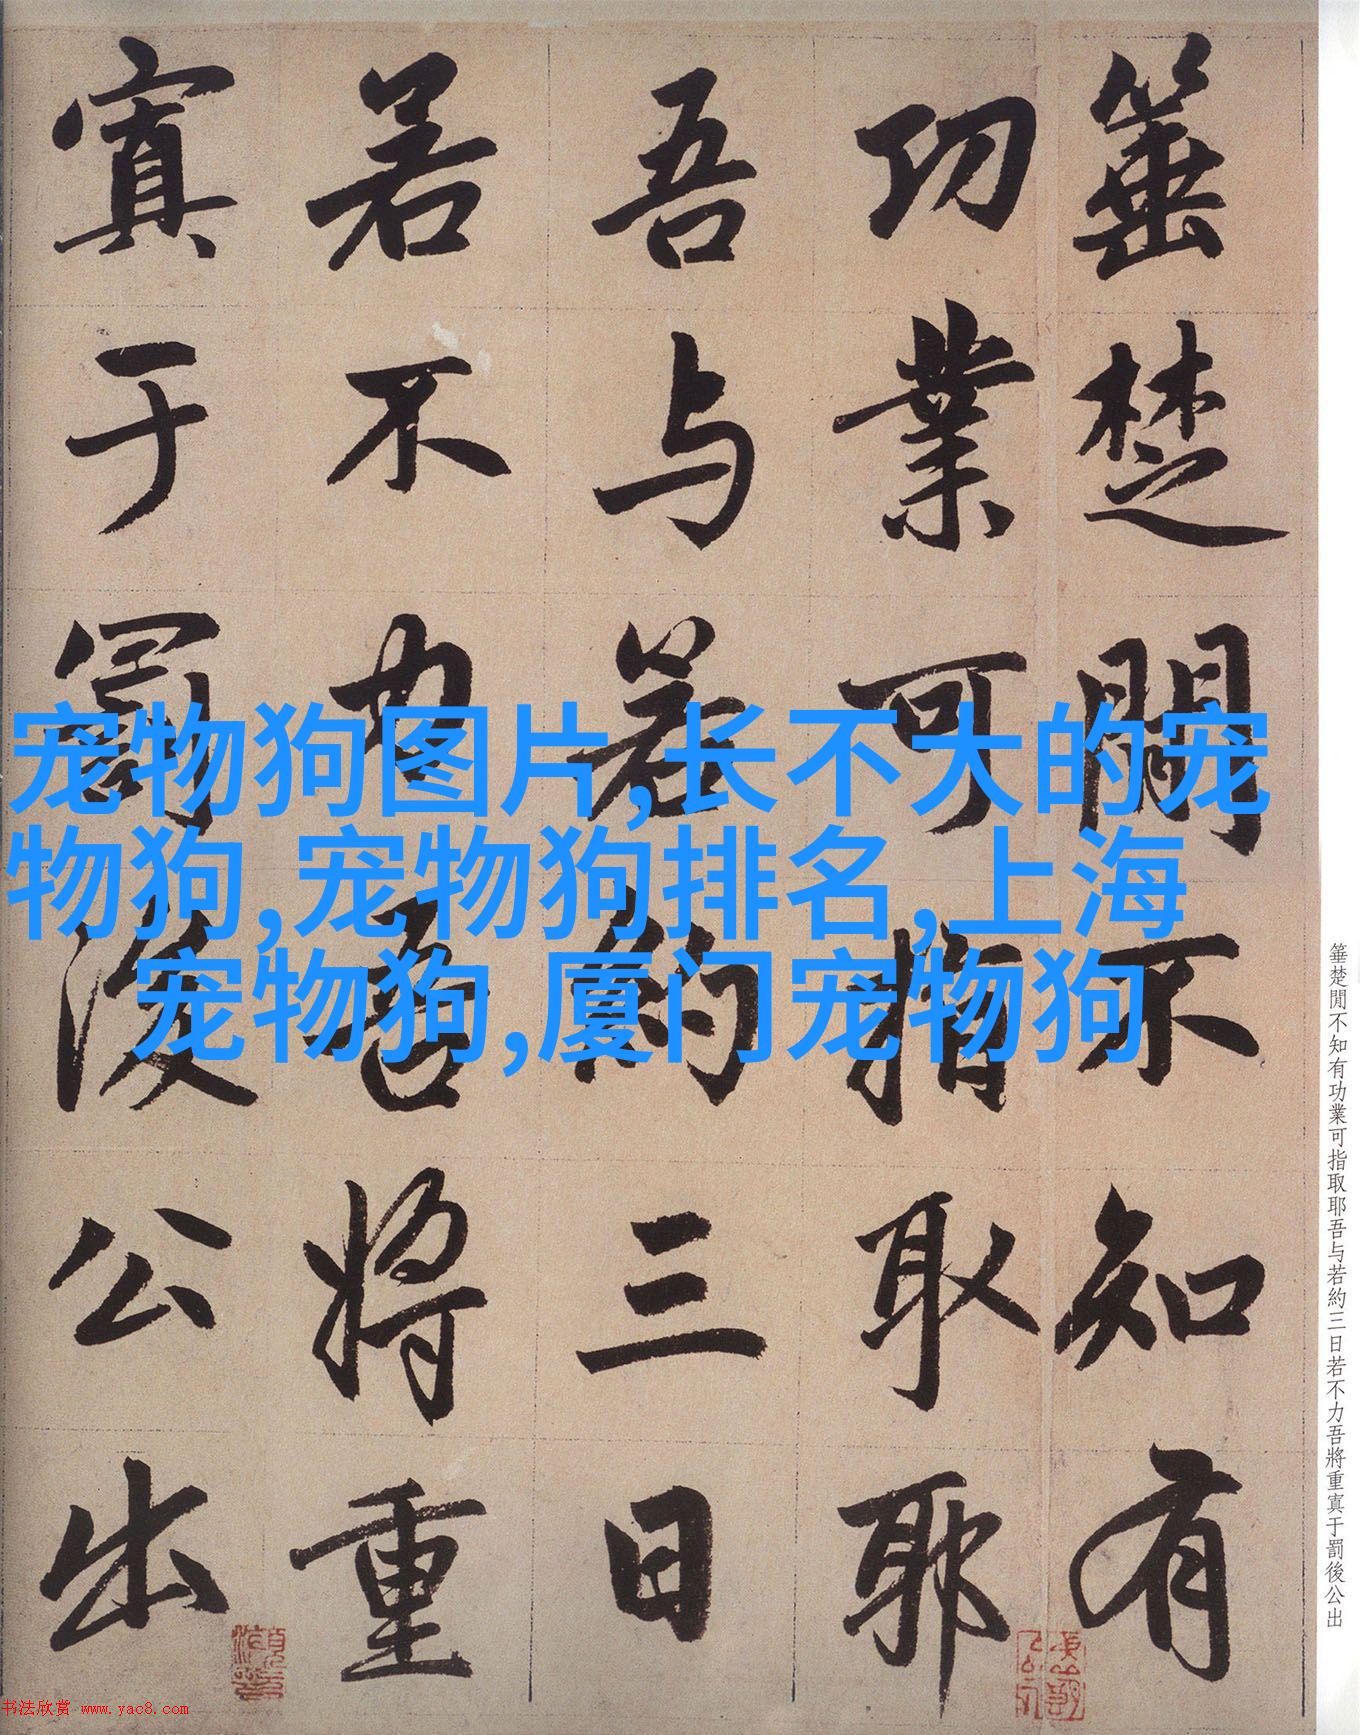 箠楚聞不知有
功業可指取耶
吾与若約三日
若不力吾將重
寘于罰後公出
宠物狗图片,长不大的宠
物狗,宠物狗排名,上海
宠物狗,厦门宠物狗
箠楚聞不知有功業可指取耶吾与若約三日若不力吾將重寘于罰後公出
书法欣赏 www.yac8.com